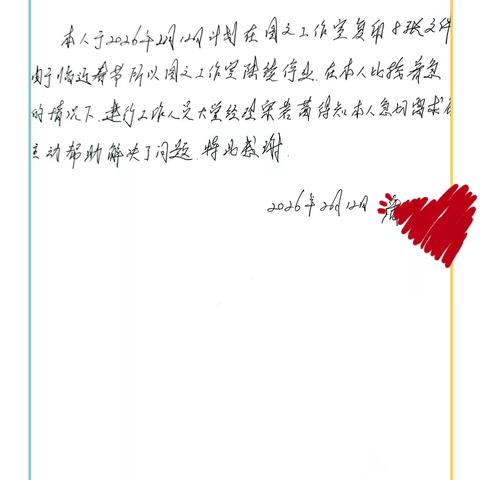 本人于2026年2月12日计划在图文工作室复印8张文件
由于临近春节所以图文工作室陆续停业.在本人比较着急
的情况下.建行工作人员大堂经理宋若菡得知本人急切需求后
主动帮助解决了问题.特此感谢.
2026年2月12日